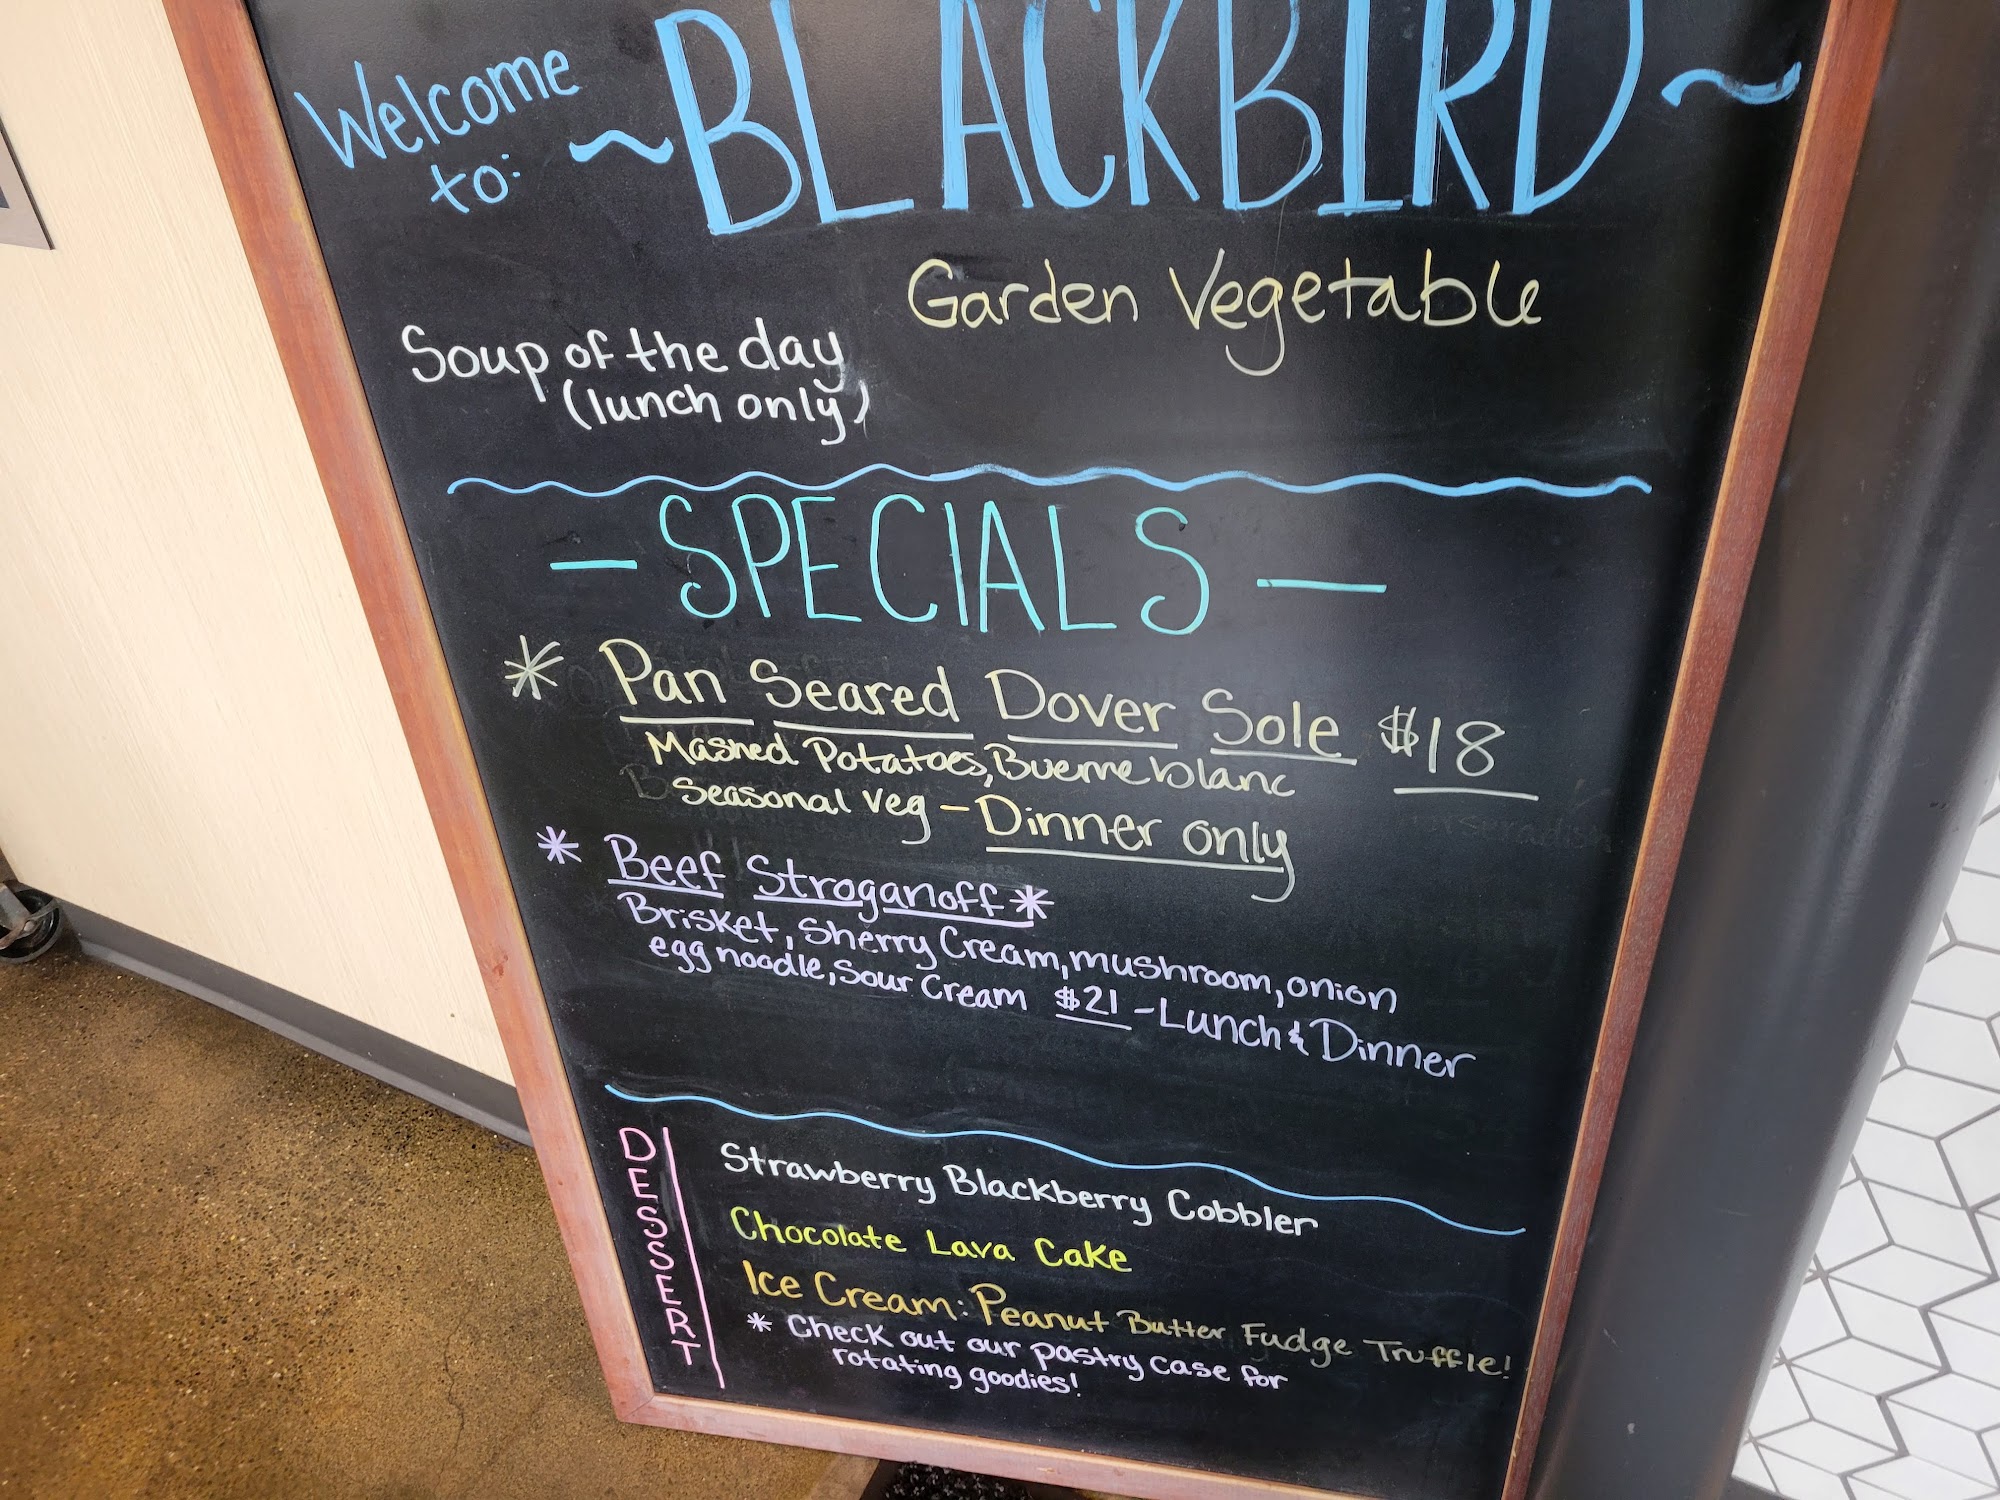 Welcome
to:
~BLACKBIRD~
Garden Vegetable
Soup of the day
(lunch only)
-SPECIALS-
* Pan Seared Dover Sole $18
Mashed Potatoes, Buerre blanc
Seasonal veg - Dinner only
* Beef Stroganoff *
Brisket, Sherry Cream, mushroom, onion
egg noodle, Sour Cream $21 - Lunch & Dinner
DESSERT
Strawberry Blackberry Cobbler
Chocolate Lava Cake
Ice Cream: Peanut Butter Fudge Truffle!
* Check out our pastry case for
rotating goodies!